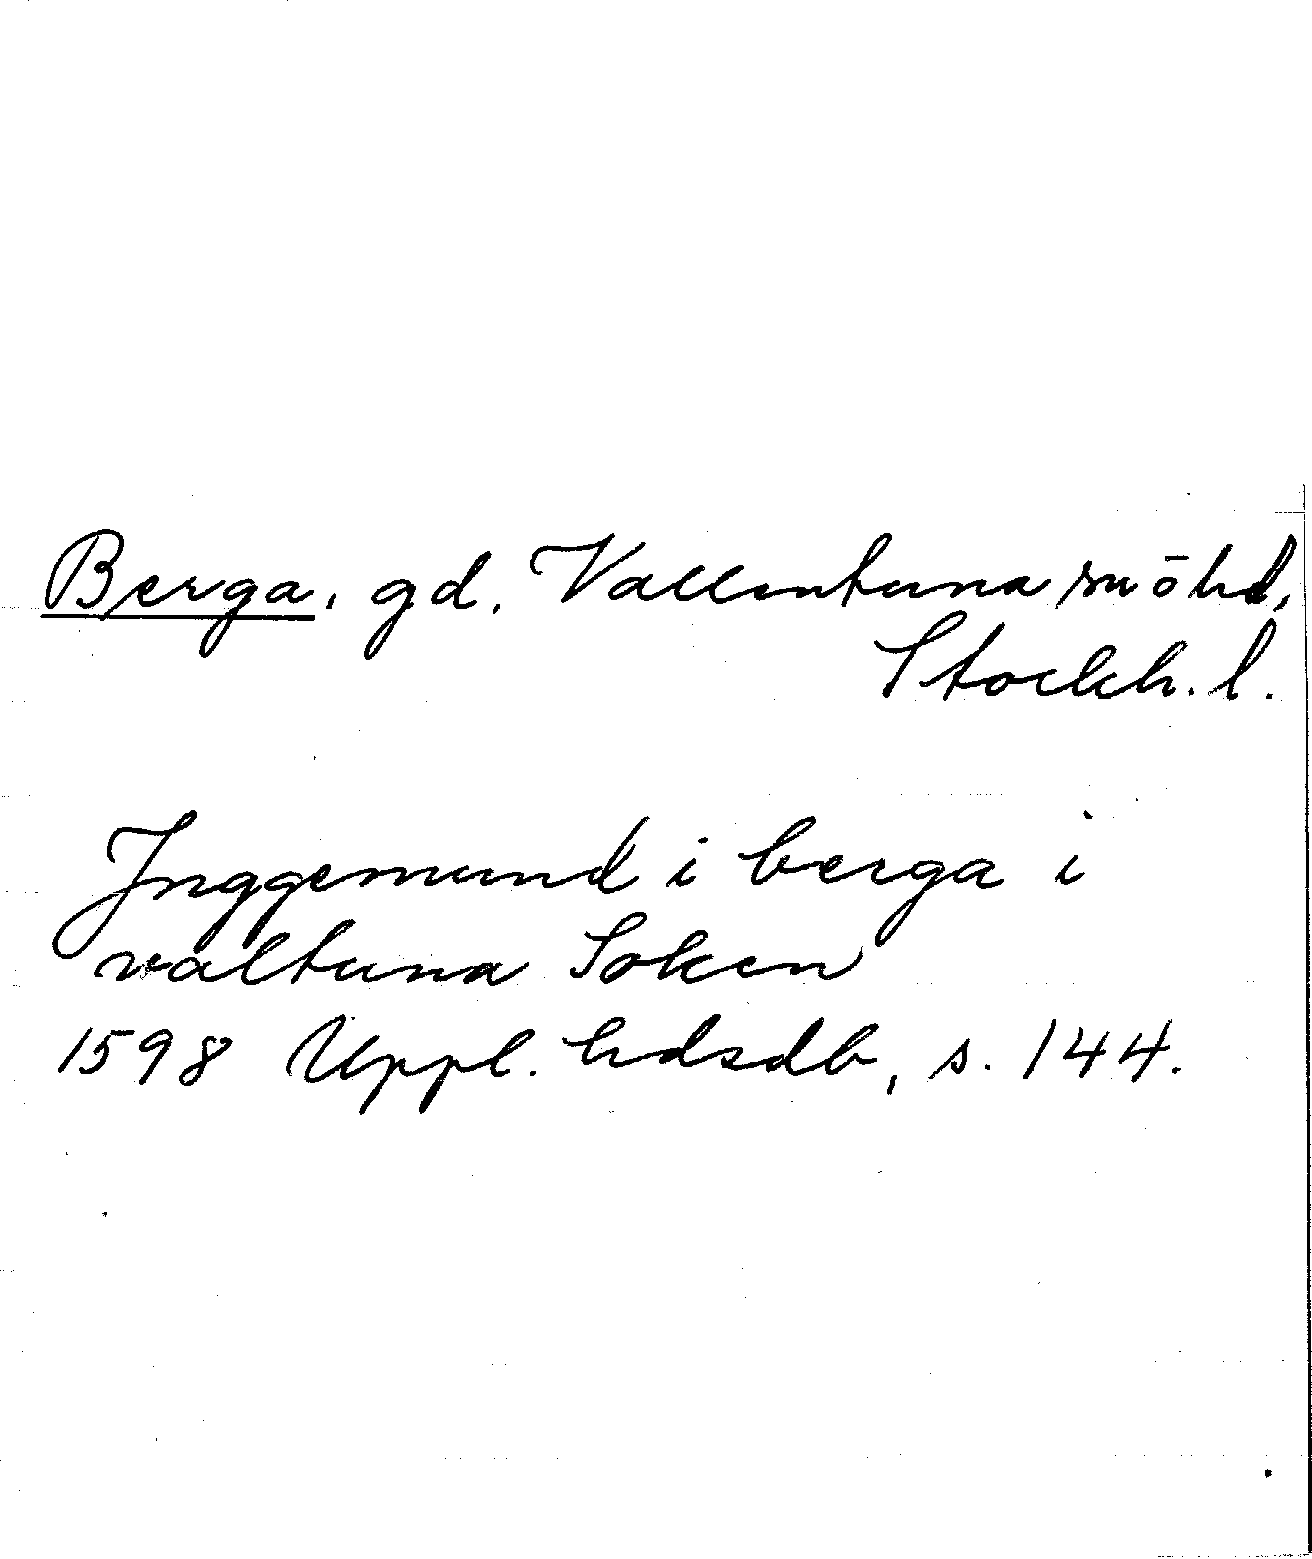 Berga, gd, Vallentuna sn ō hd,
Stockh. l.
Inggemund i berga i
valtuna Soken
1598 Uppl. hdsdb, s. 144.